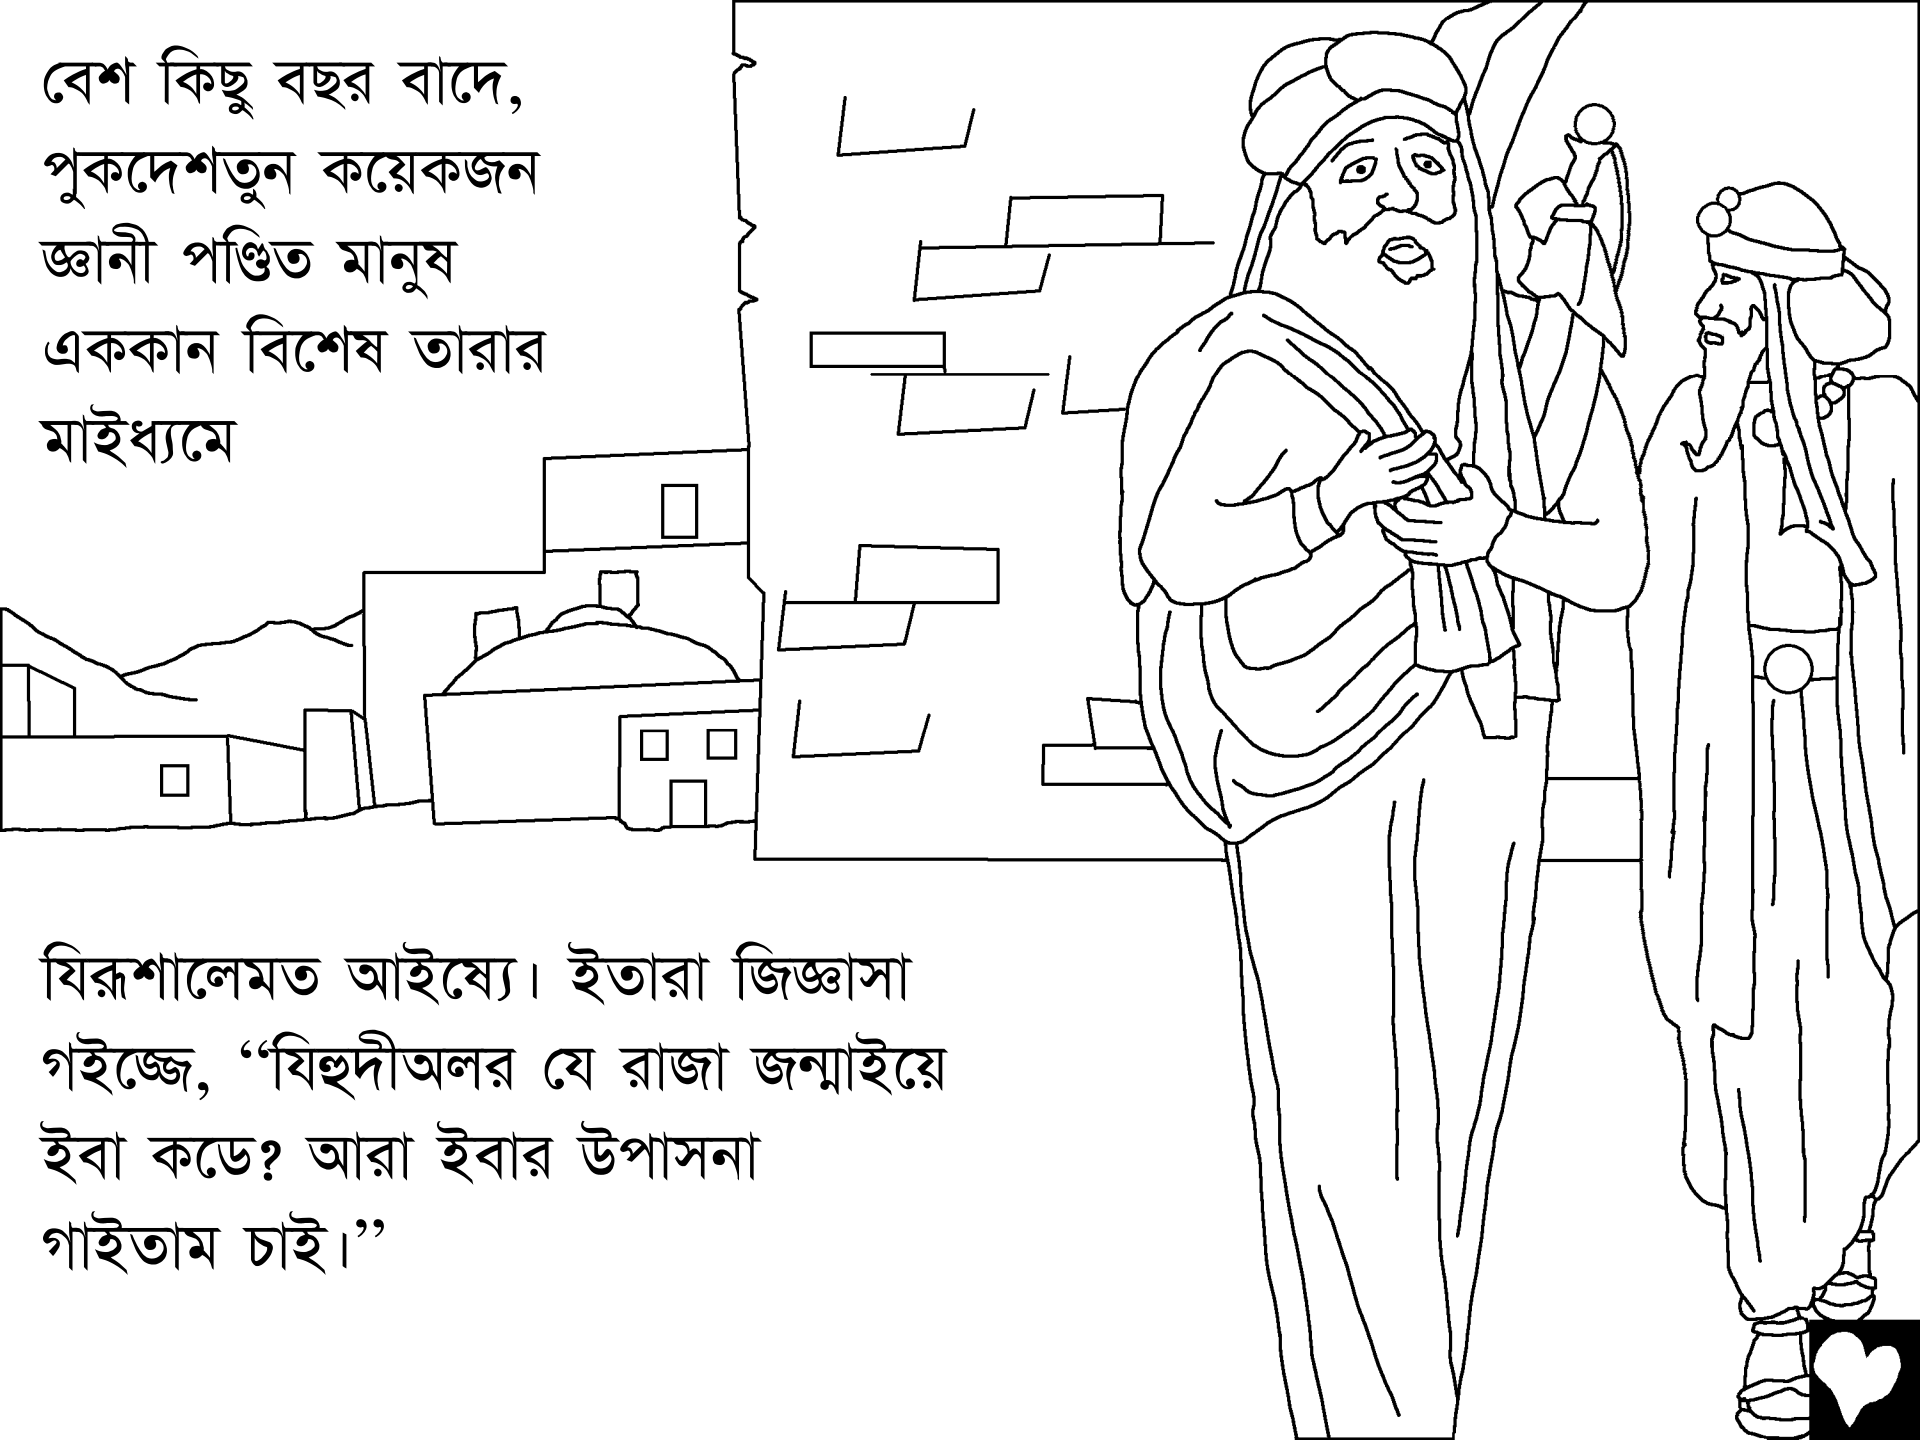 বেশ কিছু বছর বাদে,
পুকদেশতুন কয়েকজন
জ্ঞানী পণ্ডিত মানুষ
এককান বিশেষ তারার
মাইধ্যমে
যিরূশালেমত আইষ্যে। ইতারা জিজ্ঞাসা
গইজ্জে, “যিহুদীঅলর যে রাজা জন্মাইয়ে
ইবা কডে? আরা ইবার উপাসনা
গাইতাম চাই।”